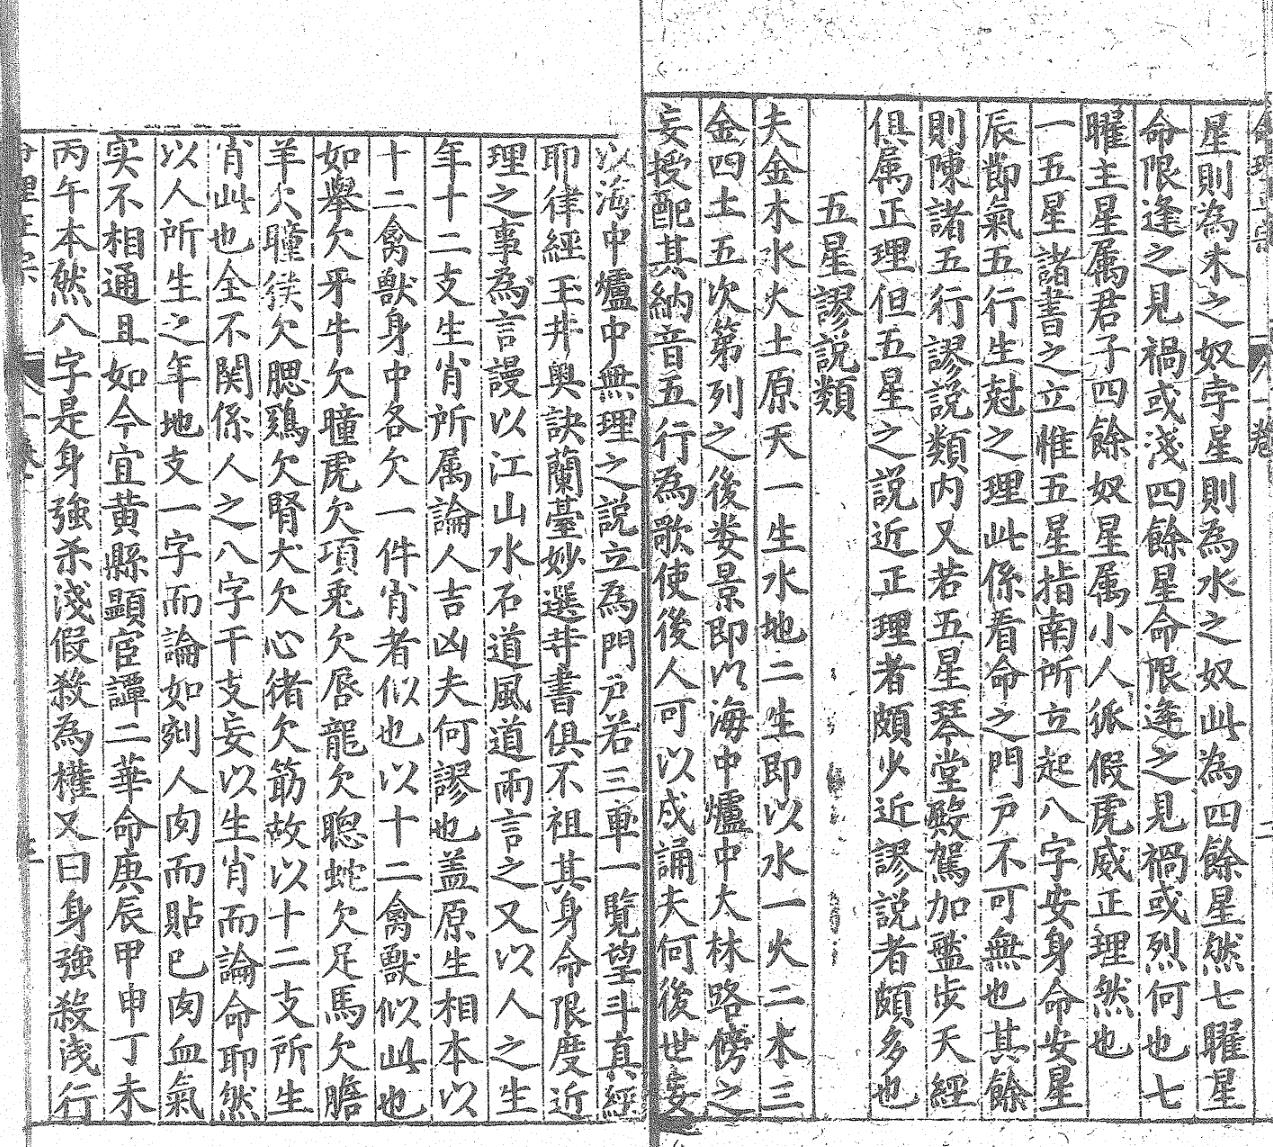 星則為木之奴孛星則為水之奴此為四餘星然七曜星
命限逢之見禍或淺四餘星命限逢之見禍或烈何也七
曜主星属君子四餘奴星属小人狐假虎威正理然也
一五星諸書之立惟五星指南所立起八字安身命安星
辰節氣五行生尅之理此係看命之門戶不可無也其餘
則陳諸五行謬說類内又若五星琴堂殿駕加盤步天經
俱属正理但五星之説近正理者頗少近謬説者頗多也
五星謬説類
夫金木水火土原天一生水地二生即以水一火二木三
金四土五次第列之後娄景即以海中爐中大林路傍之
妄授配其納音五行為歌使後人可以成誦夫何後世妄
以海中爐中無理之説立為門戶若三車一覽望斗真經
耶律經玉井奥訣蘭臺妙選等書俱不祖其身命限度近
理之事為言謾以江山水石道風道雨言之又以人之生
年十二支生肖所属論人吉凶夫何謬也盖原生相本以
十二禽獸身中各欠一件肖者似也以十二禽獸似此也
如舉欠牙牛欠瞳虎欠項兎欠唇龍欠聰蛇欠足馬欠膽
羊欠瞳猴欠腮鷄欠腎犬欠心猪欠筋故以十二支所生
肖此也全不関係人之八字干支妄以生肖而論命耶然
以人所生之年地支一字而論如剜人肉而貼己肉血氣
实不相通且如今宜黄縣顯宦譚二華命庚辰甲申丁未
丙午本然八字是身強杀淺假殺為權又曰身強殺淺行